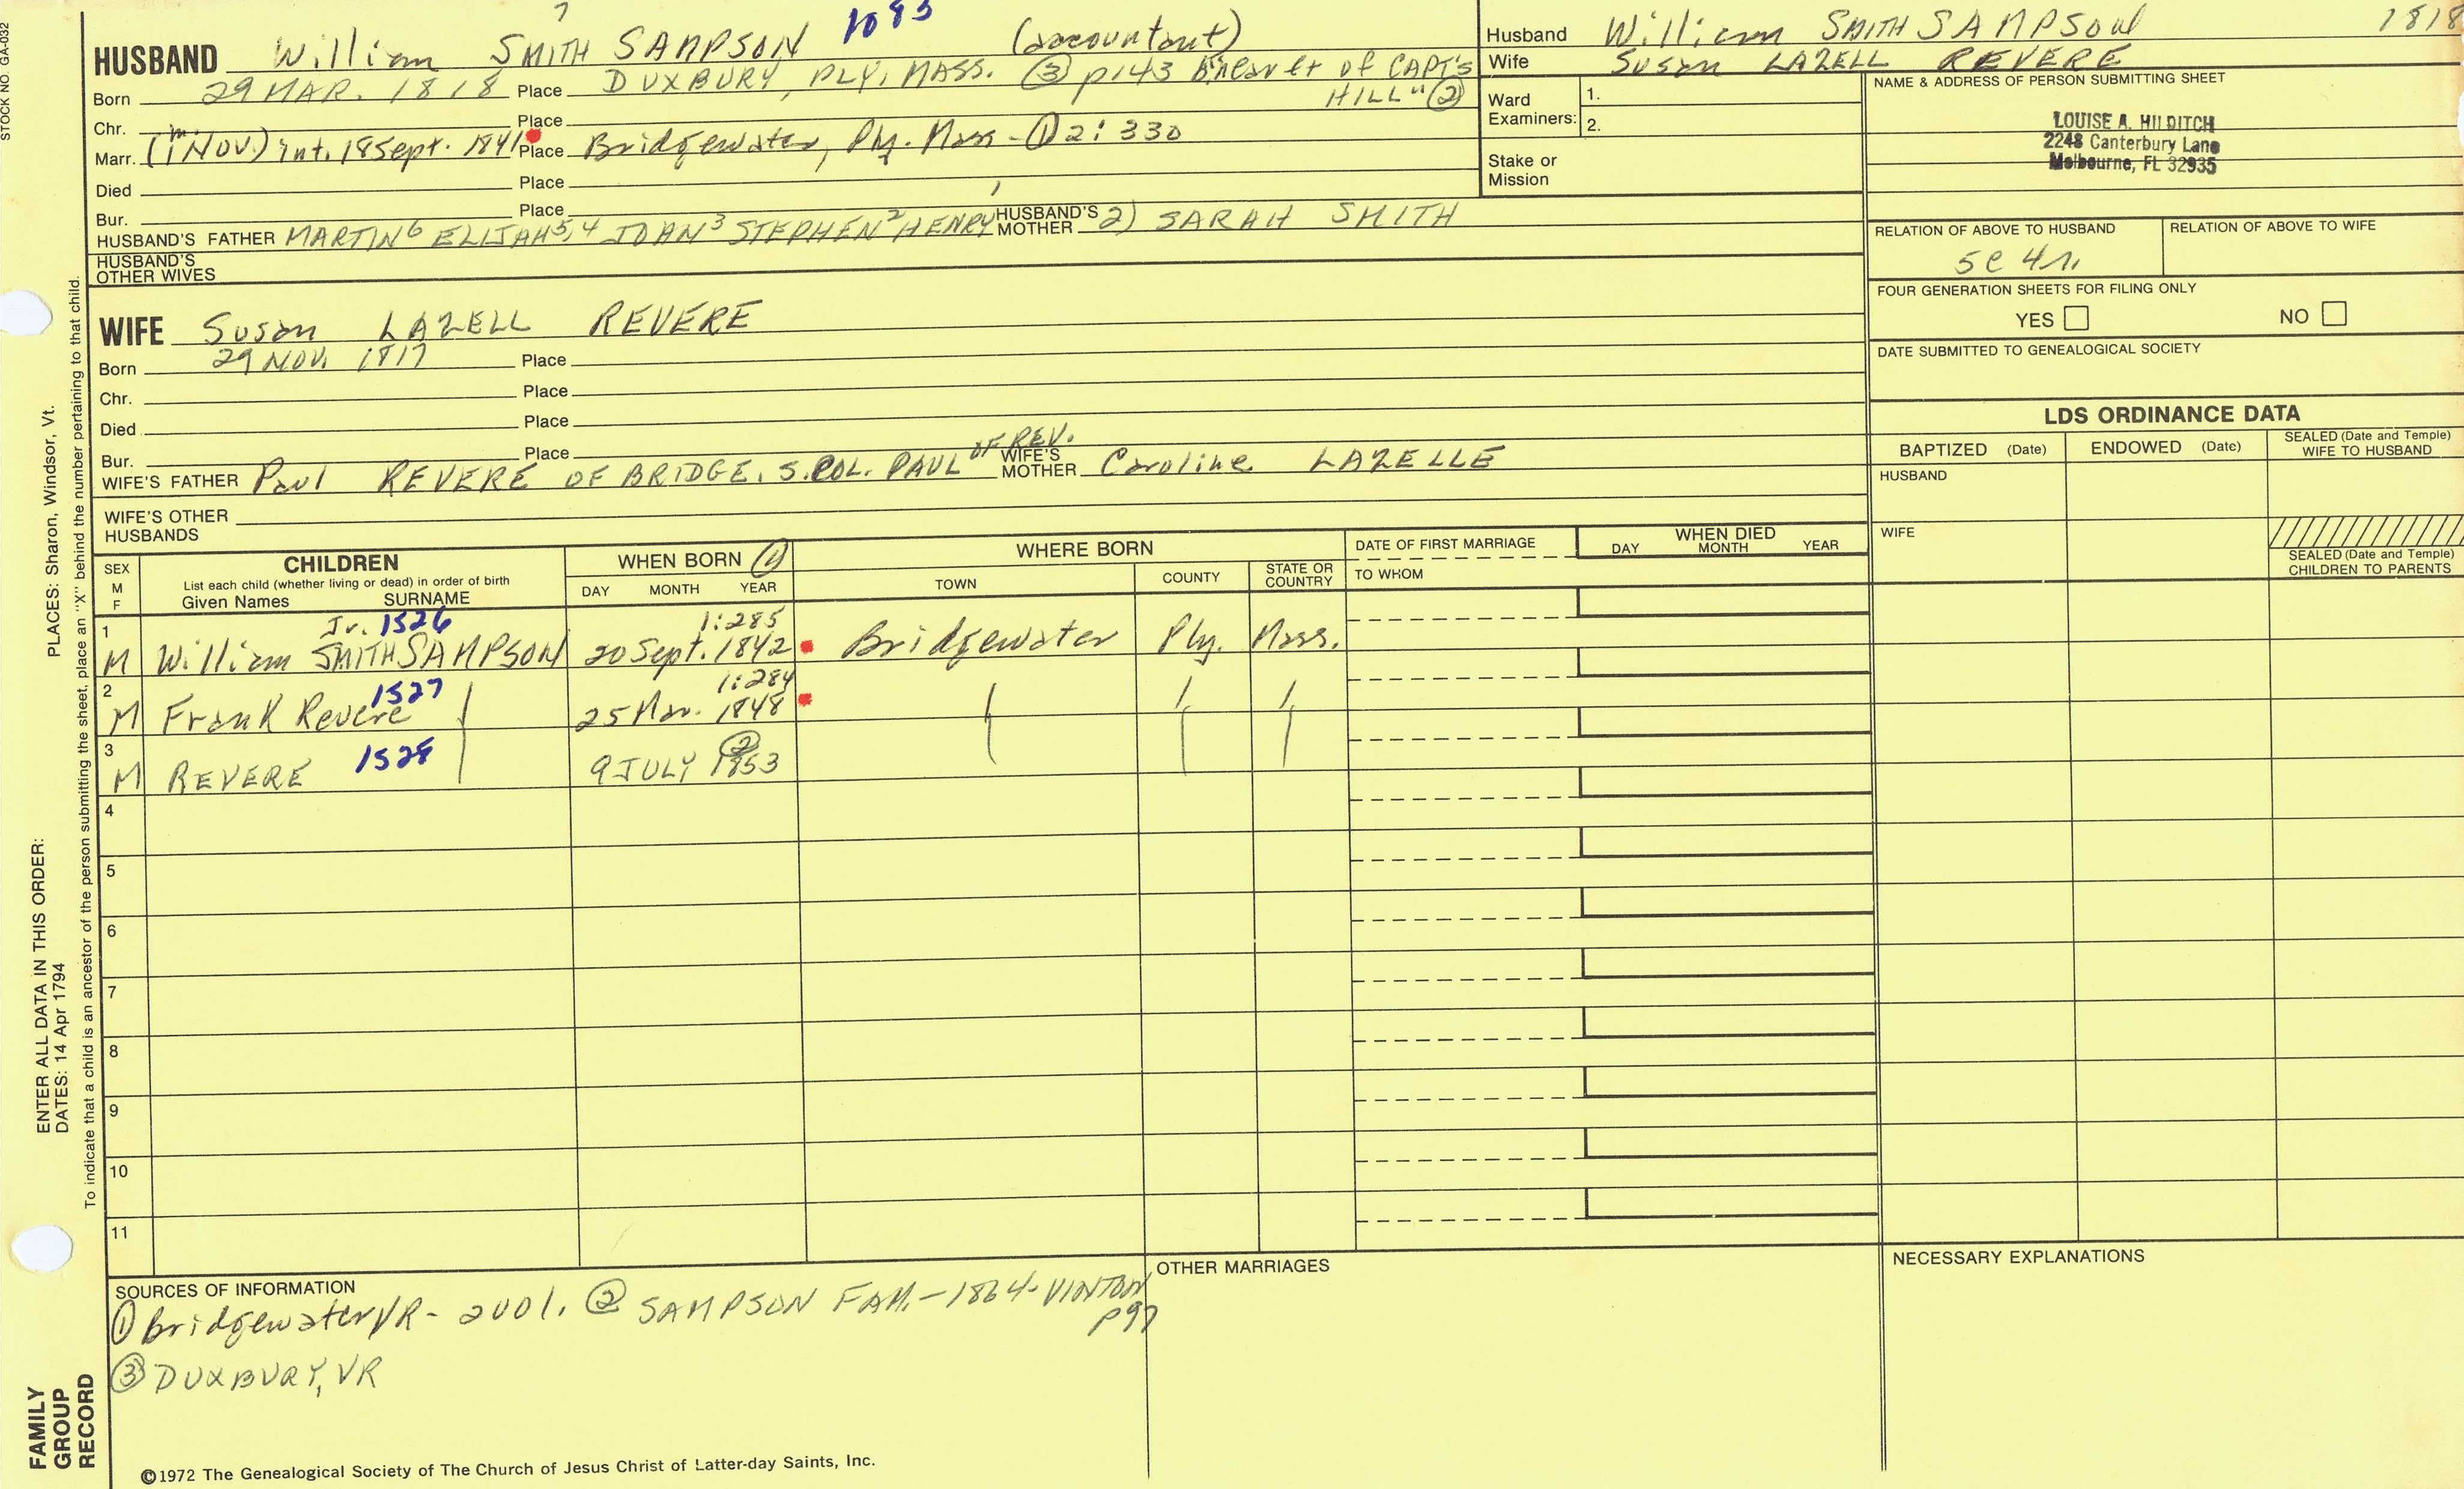 STOCK NO. GA-032
7
HUSBAND William SMITH SAMPSON 1085 (accountant)
Born 29 MAR. 1818 Place DUXBURY, PLY, MASS. ③ p143 of CAPT'S
HILL" ②
Chr. Place
Marr. (m. 1 NOV.) int. 18 Sept. 1841 Place Bridgewater, Ply. Mass - ① 2:330
Died Place
Bur. Place
HUSBAND'S FATHER MARTIN⁶ ELIJAH⁵,⁴ JOHN³ STEPHEN² HENRY' HUSBAND'S MOTHER 2) SARAH SMITH
HUSBAND'S OTHER WIVES
WIFE Susan LAZELL REVERE
Born 29 NOV. 1817 Place
Chr. Place
Died Place
Bur. Place
WIFE'S FATHER Paul REVERE OF BRIDGE. S. COL. PAUL OF REV. WIFE'S MOTHER Caroline LAZELLE
WIFE'S OTHER HUSBANDS
Husband William SMITH SAMPSON 1818
Wife Susan LAZELL REVERE
Ward Examiners: 1.
2.
Stake or Mission
NAME & ADDRESS OF PERSON SUBMITTING SHEET
LOUISE A. HILDITCH
2248 Canterbury Lane
Melbourne, FL 32935
RELATION OF ABOVE TO HUSBAND RELATION OF ABOVE TO WIFE
5c 4r.
FOUR GENERATION SHEETS FOR FILING ONLY
YES NO
DATE SUBMITTED TO GENEALOGICAL SOCIETY
LDS ORDINANCE DATA
BAPTIZED (Date) ENDOWED (Date) SEALED (Date and Temple) WIFE TO HUSBAND
HUSBAND
WIFE
SEALED (Date and Temple) CHILDREN TO PARENTS
SEX M F CHILDREN WHEN BORN ① WHERE BORN DATE OF FIRST MARRIAGE WHEN DIED
List each child (whether living or dead) in order of birth
Given Names SURNAME DAY MONTH YEAR TOWN COUNTY STATE OR COUNTRY TO WHOM DAY MONTH YEAR
Jr. 1526 1:285
1 M William SMITH SAMPSON 20 Sept. 1842 Bridgewater Ply. Mass.
1527 1:284
2 M Frank Revere 25 Mar. 1848
1528 ②
3 M REVERE 9 JULY 1853
4
5
6
7
8
9
10
11
SOURCES OF INFORMATION
① Bridgewater VR - 2 vol. ② SAMPSON FAM. - 1864 - VINTON
p97
③ DUXBURY, VR
OTHER MARRIAGES
NECESSARY EXPLANATIONS
©1972 The Genealogical Society of The Church of Jesus Christ of Latter-day Saints, Inc.
FAMILY GROUP RECORD
ENTER ALL DATA IN THIS ORDER:
DATES: 14 Apr 1794
PLACES: Sharon, Windsor, Vt.
To indicate that a child is an ancestor of the person submitting the sheet, place an "X" behind the number pertaining to that child.